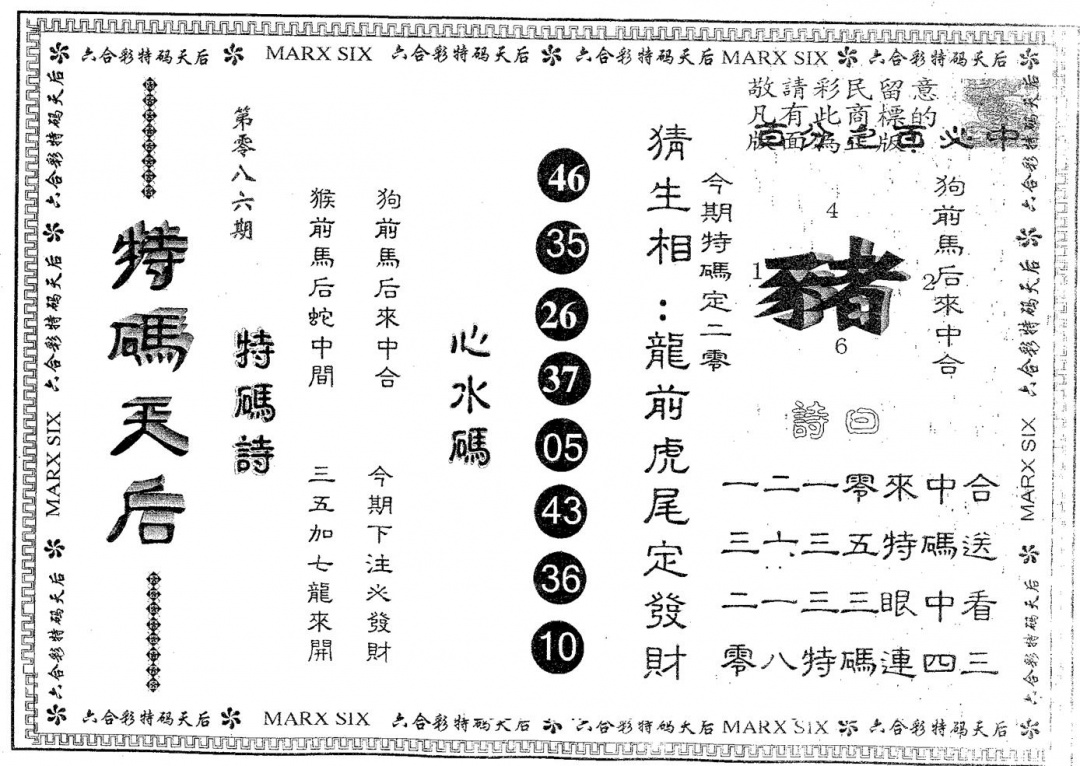 六合彩特码天后 MARX SIX 六合彩特码天后 六合彩特码天后 MARX SIX 六合彩特码天后
六合彩特码天后 六合彩特码天后 MARX SIX 六合彩特码天后
六合彩特码天后 六合彩特码天后 MARX SIX 六合彩特码天后
敬請彩民留意
凡有此商標的
版面為正版
直盆定百必中
狗前馬后來中合
4
1
豬
2
6
今期特碼定二零
詩曰
一二一零來中合
三六三五特碼送
二一三三眼中看
零八特碼連四三
猜生相:龍前虎尾定發財
46
35
26
37
05
43
36
10
心水碼
狗前馬后來中合
今期下注必發財
猴前馬后蛇中間
三五加七龍來開
第零八六期
特碼詩
特碼天后
六合彩特码天后 MARX SIX 六合彩特码天后 六合彩特码天后 MARX SIX 六合彩特码天后